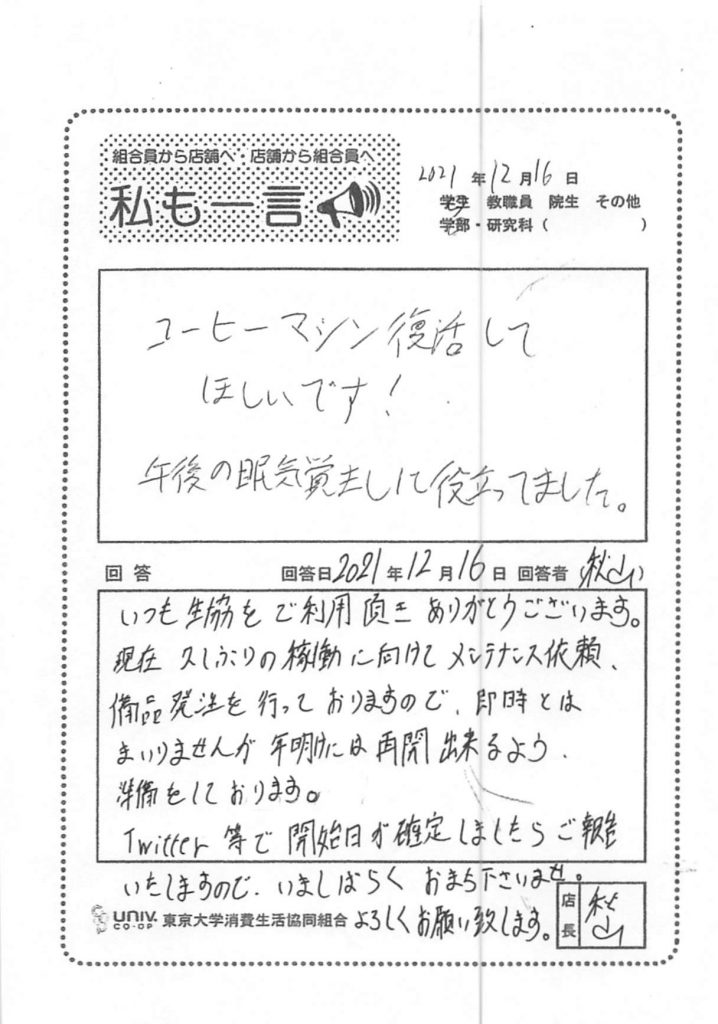 組合員から店舗へ・店舗から組合員へ
私も一言
2021年12月16日
学生 教職員 院生 その他
学部・研究科（ ）
コーヒーマシン復活して
ほしいです！
午後の眠気覚ましに役立ってました。
回答 回答日2021年12月16日 回答者（秋山）
いつも生協をご利用頂きありがとうございます。
現在久しぶりの稼働に向けてメンテナンス依頼、
備品発注を行っておりますので、即時とは
まいりませんが年明けには再開出来るよう、
準備をしております。
Twitter等で開始日が確定しましたらご報告
いたしますので、いましばらくおまち下さいませ。
UNIV. CO-OP 東京大学消費生活協同組合 よろしくお願い致します。
店長 秋山